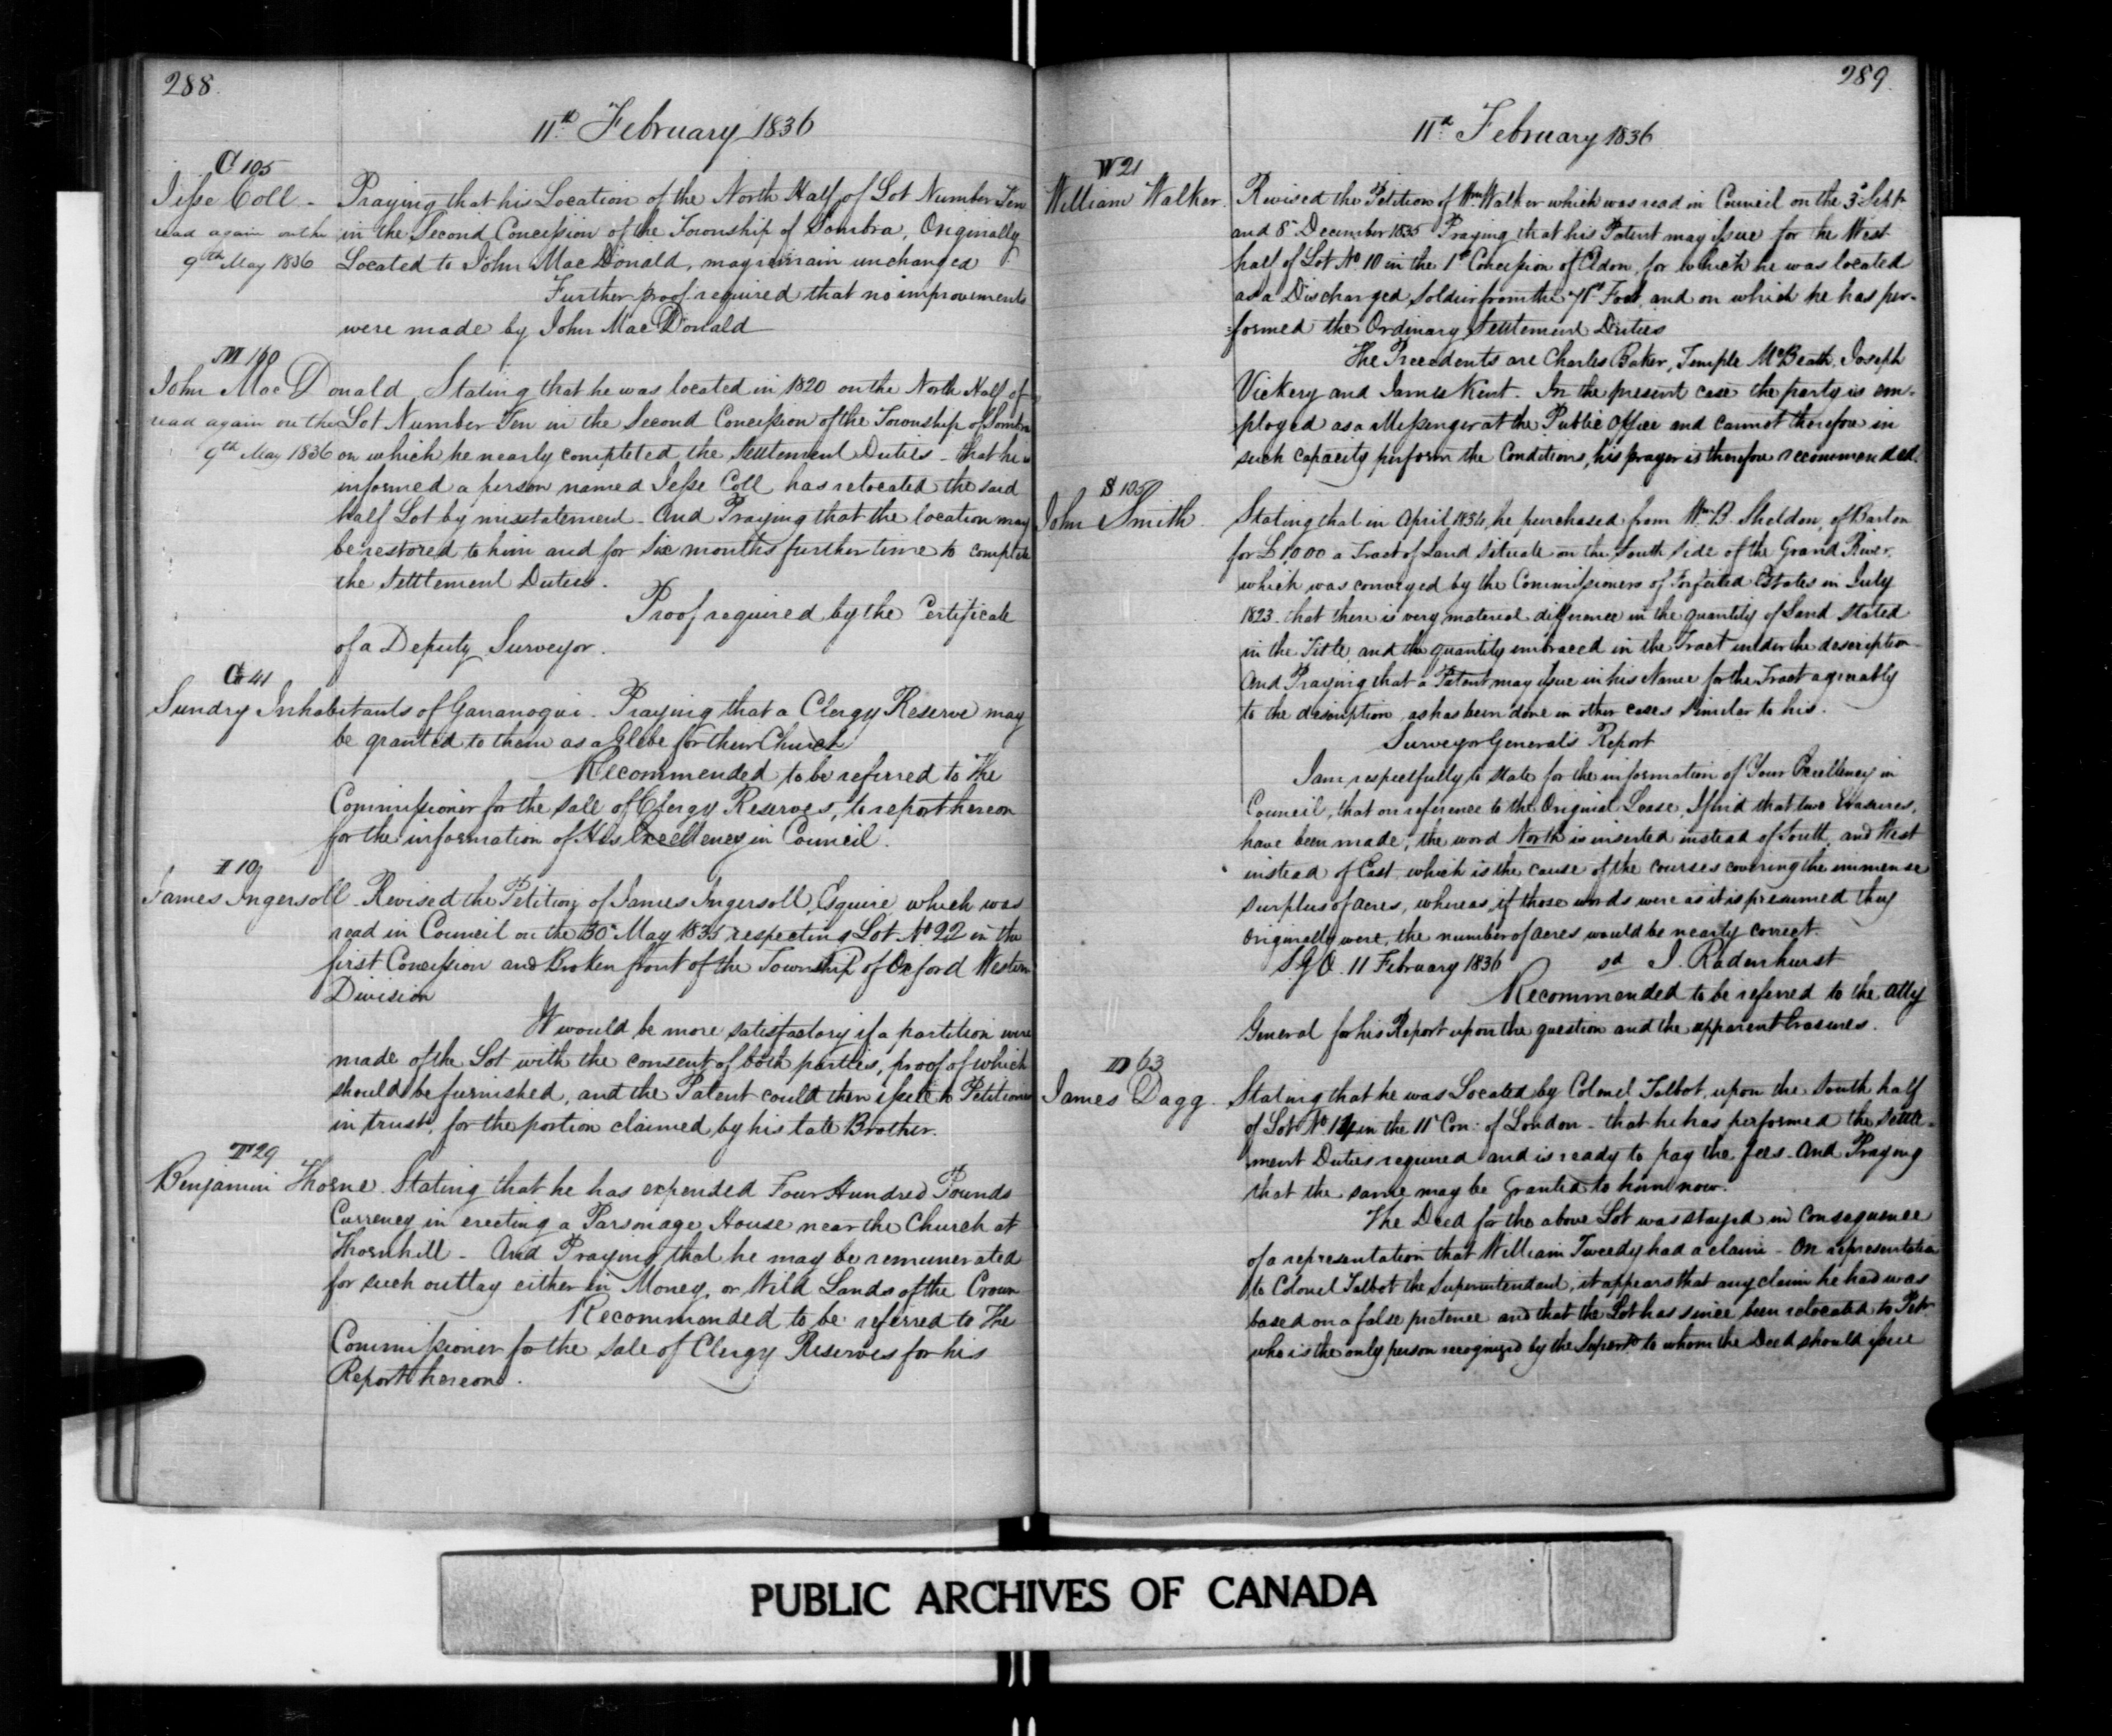 288.
11th February 1836
C 105
Jesse Coll - Praying that his Location of the North Half of Lot Number Ten
read again on the in the Second Concession of the Township of Sombra, Originally
9th May 1836 Located to John MacDonald, may remain unchanged
Further proof required that no improvements
were made by John MacDonald
M
John MacDonald Stating that he was located in 1820 on the North Half of
read again on the Lot Number Ten in the Second Concession of the Township of Sombra
9th May 1836 on which he nearly completed the Settlement Duties - that he is
informed a person named Jesse Coll has relocated the said
half Lot by misstatement - And Praying that the location may
be restored to him and for six months further time to complete
the Settlement Duties.
Proof required by the Certificate
of a Deputy Surveyor.
G 41
Sundry Inhabitants of Gananoqui - Praying that a Clergy Reserve may
be granted to them as a Glebe for their Church
Recommended to be referred to The
Commissioner for the sale of Clergy Reserves, to report hereon
for the information of His Excellency in Council.
I 10
James Ingersoll - Revised the Petition of James Ingersoll, Esquire, which was
read in Council on the 30th May 1835 respecting Lot No 22 in the
first Concession and Broken front of the Township of Oxford Western
Division
It would be more satisfactory if a partition were
made of the Lot with the consent of both parties, proof of which
should be furnished, and the Patent could then issue to Petitioner
in trust, for the portion claimed by his late Brother.
T 29
Benjamin Thorne. Stating that he has expended Four Hundred Pounds
Currency in erecting a Parsonage House near the Church at
Thornhill - And Praying that he may be remunerated
for such outlay either in Money, or Wild Lands of the Crown
Recommended to be referred to The
Commissioner for the sale of Clergy Reserves for his
Report hereon.
289.
11th February 1836
W 21
William Walker. Revised the Petition of Wm Walker which was read in Council on the 3d Sept
and 8th December 1835 Praying that his Patent may issue for the West
half of Lot No 10 in the 1st Concession of Eldon, for which he was located
as a Discharged Soldier from the 71st Foot, and on which he has per-
=formed the Ordinary Settlement Duties
The Precedents are Charles Baker, Temple McBeath, Joseph
Vickery and James Kent - In the present case the party is em-
ployed as a Messenger at the Public Office and cannot therefore in
such capacity perform the Conditions, his prayer is therefore recommended.
S 105
John Smith Stating that in April 1834, he purchased from Wm B. Sheldon, of Barton
for £1000 a Tract of Land situate on the South side of the Grand River,
which was conveyed by the Commissioners of Forfeited Estates in July
1823 - that there is very material difference in the quantity of Land stated
in the Title, and the quantity embraced in the Tract under the description -
And Praying that a Patent may issue in his Name for the Tract agreeably
to the description, as has been done in other cases similar to his.
Surveyor General's Report
I am respectfully to state for the information of Your Excellency in
Council, that on reference to the Original Lease, I find that two Erasures,
have been made, the word North is inserted instead of South, and West
instead of East, which is the cause of the courses covering the immense
surplus of acres, whereas, if those words were as it is presumed they
originally were, the number of acres would be nearly correct.
S.G.O. 11 February 1836 sd J. Radenhurst
Recommended to be referred to the Atty
General for his Report upon the question and the apparent Erasures.
D 63
James Dagg. Stating that he was Located by Colonel Talbot, upon the South half
of Lot No in the 11th Con: of London - that he has performed the Settle-
ment Duties required and is ready to pay the fees - And Praying
that the same may be Granted to him now.
The Deed for the above Lot was stayed in consequence
of a representation that William Tweedy had a claim - On representation
to Colonel Talbot the Superintendant, it appears that any claim he had was
based on a false pretence and that the Lot has since been relocated to Petr
who is the only person recognized by the Supert to whom the Deed should issue
PUBLIC ARCHIVES OF CANADA